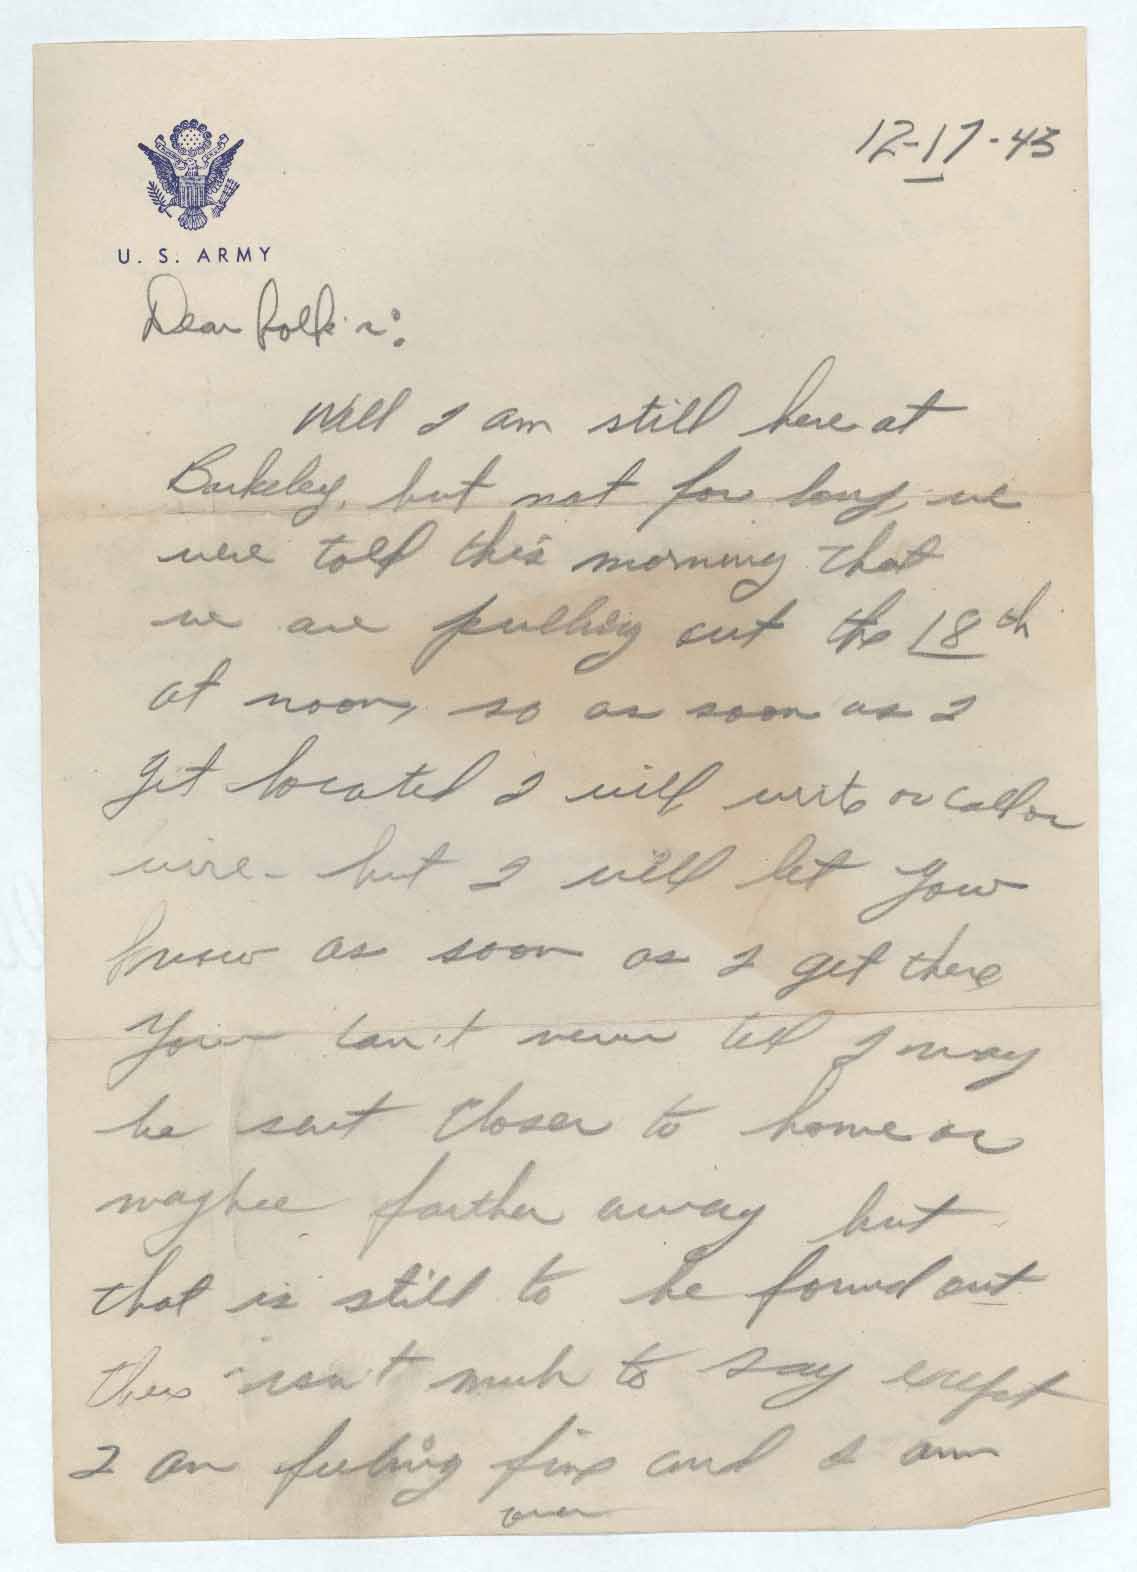 12-17-43
U. S. ARMY
Dear folks:
Well I am still here at
Barkeley, but not for long, we
were told this morning that
we are pulling out the 18th
at noon, so as soon as I
get located I will write or call or
wire - but I will let you
know as soon as I get there
You can't never tell I may
be sent closer to home or
maybee farther away but
that is still to be found out
there isn't much to say except
I am feeling fine and I am
over